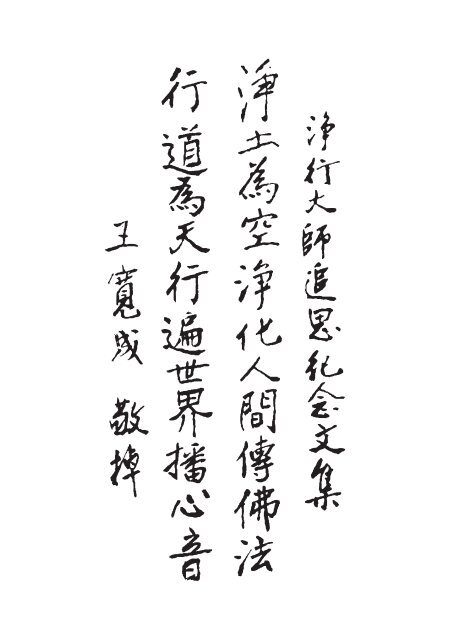 淨行大師追思紀念文集
淨土為空淨化人間傳佛法
行道為天行遍世界播心音
王寬成 敬悼